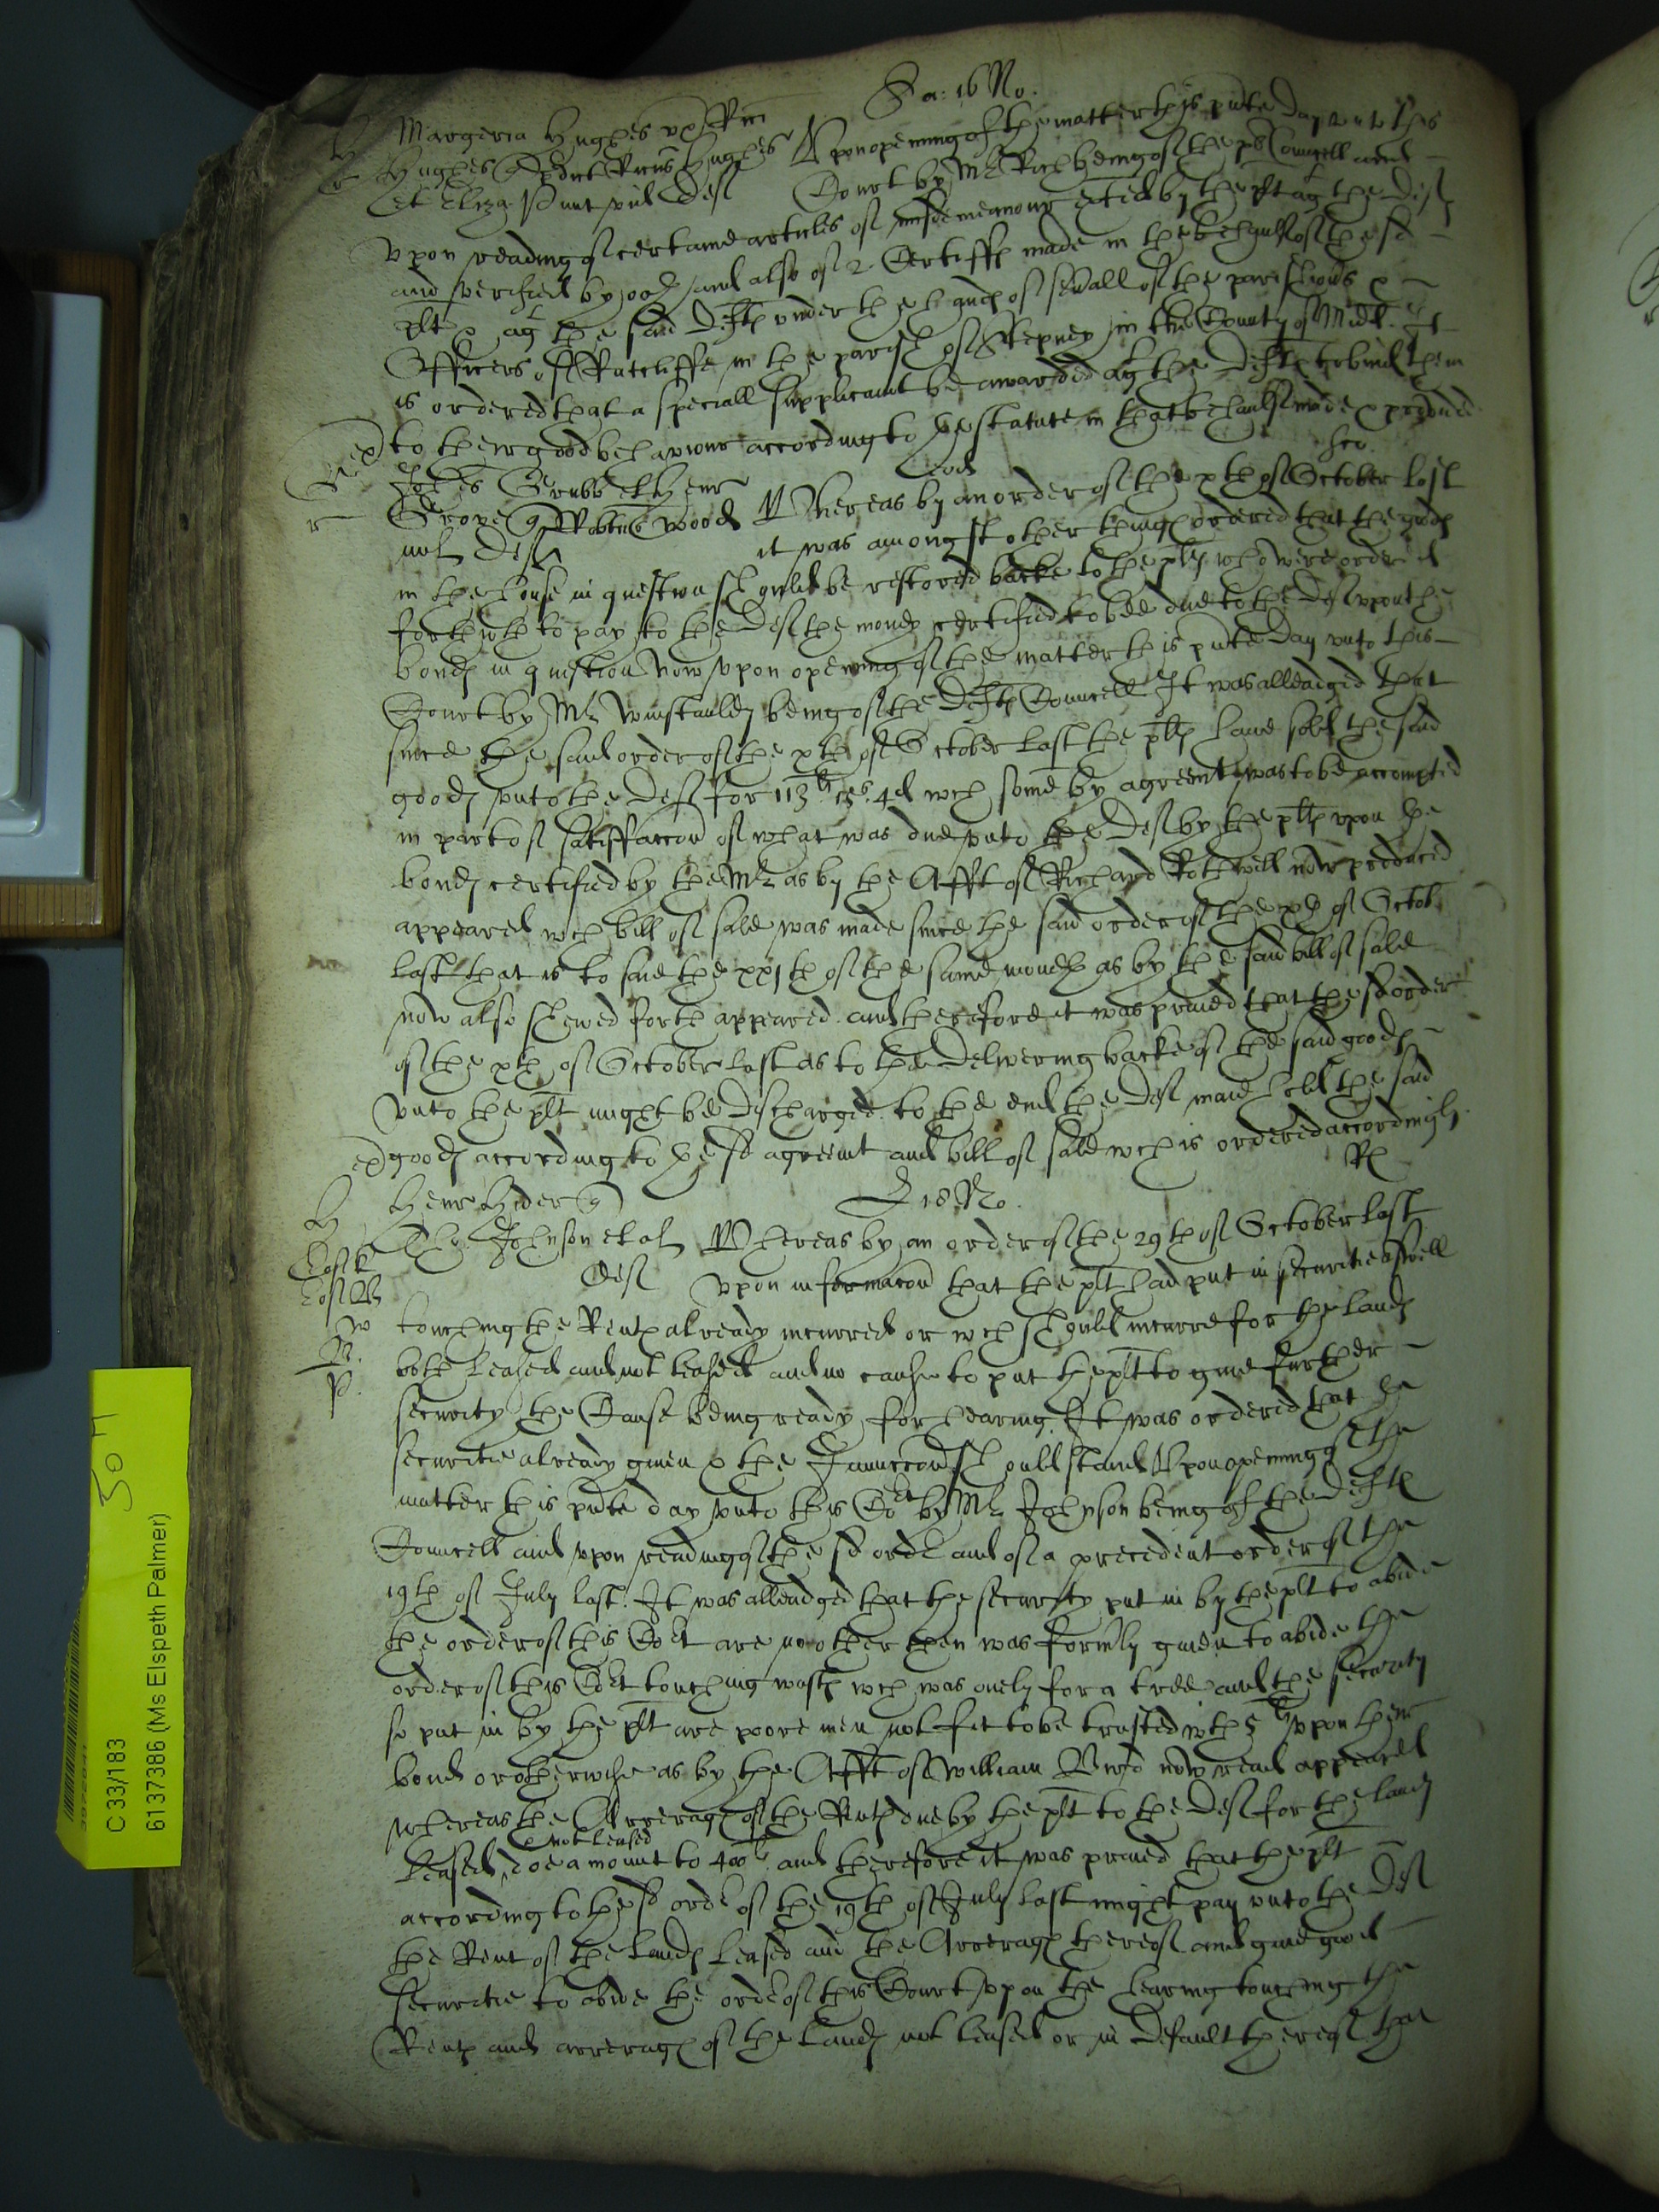 Sa: 16 No.
Margeria Hughes vx Rici
Hughes Vpon opening of the matter this pñte day vnto this
et Eliza Hunt vid Def Court by Mr Rich being of the plts Councell and
vpon reading of certaine articles of misdemeanour exted by the plt agt the Defts
and verified by oath and also of 2 Certiffts made in the behaulf of the sd
plt & agt the said Defts vnder the hands of seuall of the parishioñs &
Officers of Ratcliffe in the parish of Stepney in the County of Midd. It
is ordered that a speciall supplicauit be awarded agt the Defts to bind them
to their good behaviour according to the statute in that behaulf made & prouided
Johes Grubb et Henr
Grove Robtus Wood Whereas by an order of the xth of October last
mil Def it was amongst other things ordered that the goods
in the house in question should be restored backe to the plts who were ordered
forthwth to pay to the Def the money certified to bee due to the Def vpon the
bonds in question now vpon opening of the matter this pñte day vnto this
Court by Mr Winstanley being of the Defts Councell It was alleadged that
since the said order of the xth of October last the plts haue sold the said
goods vnto the Def for 113li 13s 4d wch some by agreemt was to be accompted
in part of satisfaccon of what was due vnto the Def by the plts vpon the
bonds certified by the Mr as by the Afft of Richard Rothwell now produced
appeared wch bill of sale was made since the said order of the xth of Octob
last that is to saie the xxjth of the same month as by the said bill of sale
now also shewed forth appeared and therefore it was praied that the sd order
of the xth of October last as to the delivering backe of the said goods
vnto the plt might be discharged to the end the Def maie hold the said
goods according to the sd agreemt and bill of sale wch is ordered accordingly.
Henr Hider
18 No.
Tho: Johnson et al Whereas by an order of the 29th of October last
Def vpon informacon that the plt had put in securitie aswell
touching the Rents already incurred or wch should incurre for the lands
both leased and not leased and no cause to put the plt to giue further
security the Cause being ready for hearing. It was ordered that the
securitie already giuen & the Iniuncion should stand Vpon opening of the
matter this pñte day vnto this Cort by Mr Johnson being of the Defts
Councell and vpon reading of the sd order and of a precedent order of the
19th of July last. It was alleadged that the security put in by the plt to abide
the order of this Cort are no other then was formly giuen to abide the
order of this Cort touching wast wch was onely for a tree and the security
so put in by the plt are poore men not fit to be trusted wth 5li vpon their
bond or otherwise as by the Afft of William now read appeared
whereas the Arrerages of the Rents due by the plt to the Def for the lands
& not leased
leased doe amount to 400li and therefore it was praied that the plt
according to the sd order of the 19th of July last might pay vnto the Def
the Rent of the Lands leased and the Arrerages thereof and giue good
securitie to abide the order of this Court vpon the hearing touching the
Rents and arrerages of the Lands not leased or in default thereof that
C 33/183
6137386 (Ms Elspeth Palmer)